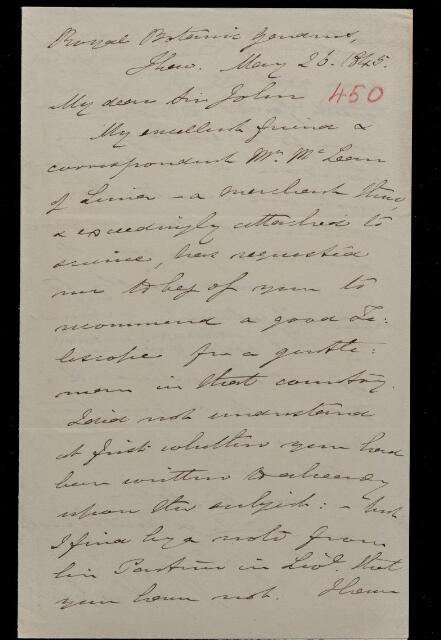 Royal Botanic Gardens,
Kew. May 26. 1845.
My dear Sir John 450
My excellent friend &
correspondent Mr. McLean
of Lima - a merchant there,
& exceedingly attached to
science, has requested
me to beg of you to
recommend a good Te-
lescope for a gentle:
man in that country.
I did not understand
at first whether you had
been written to already
upon the subject: - but
I find by a note from
his Partner in Livl. that
you have not. I have